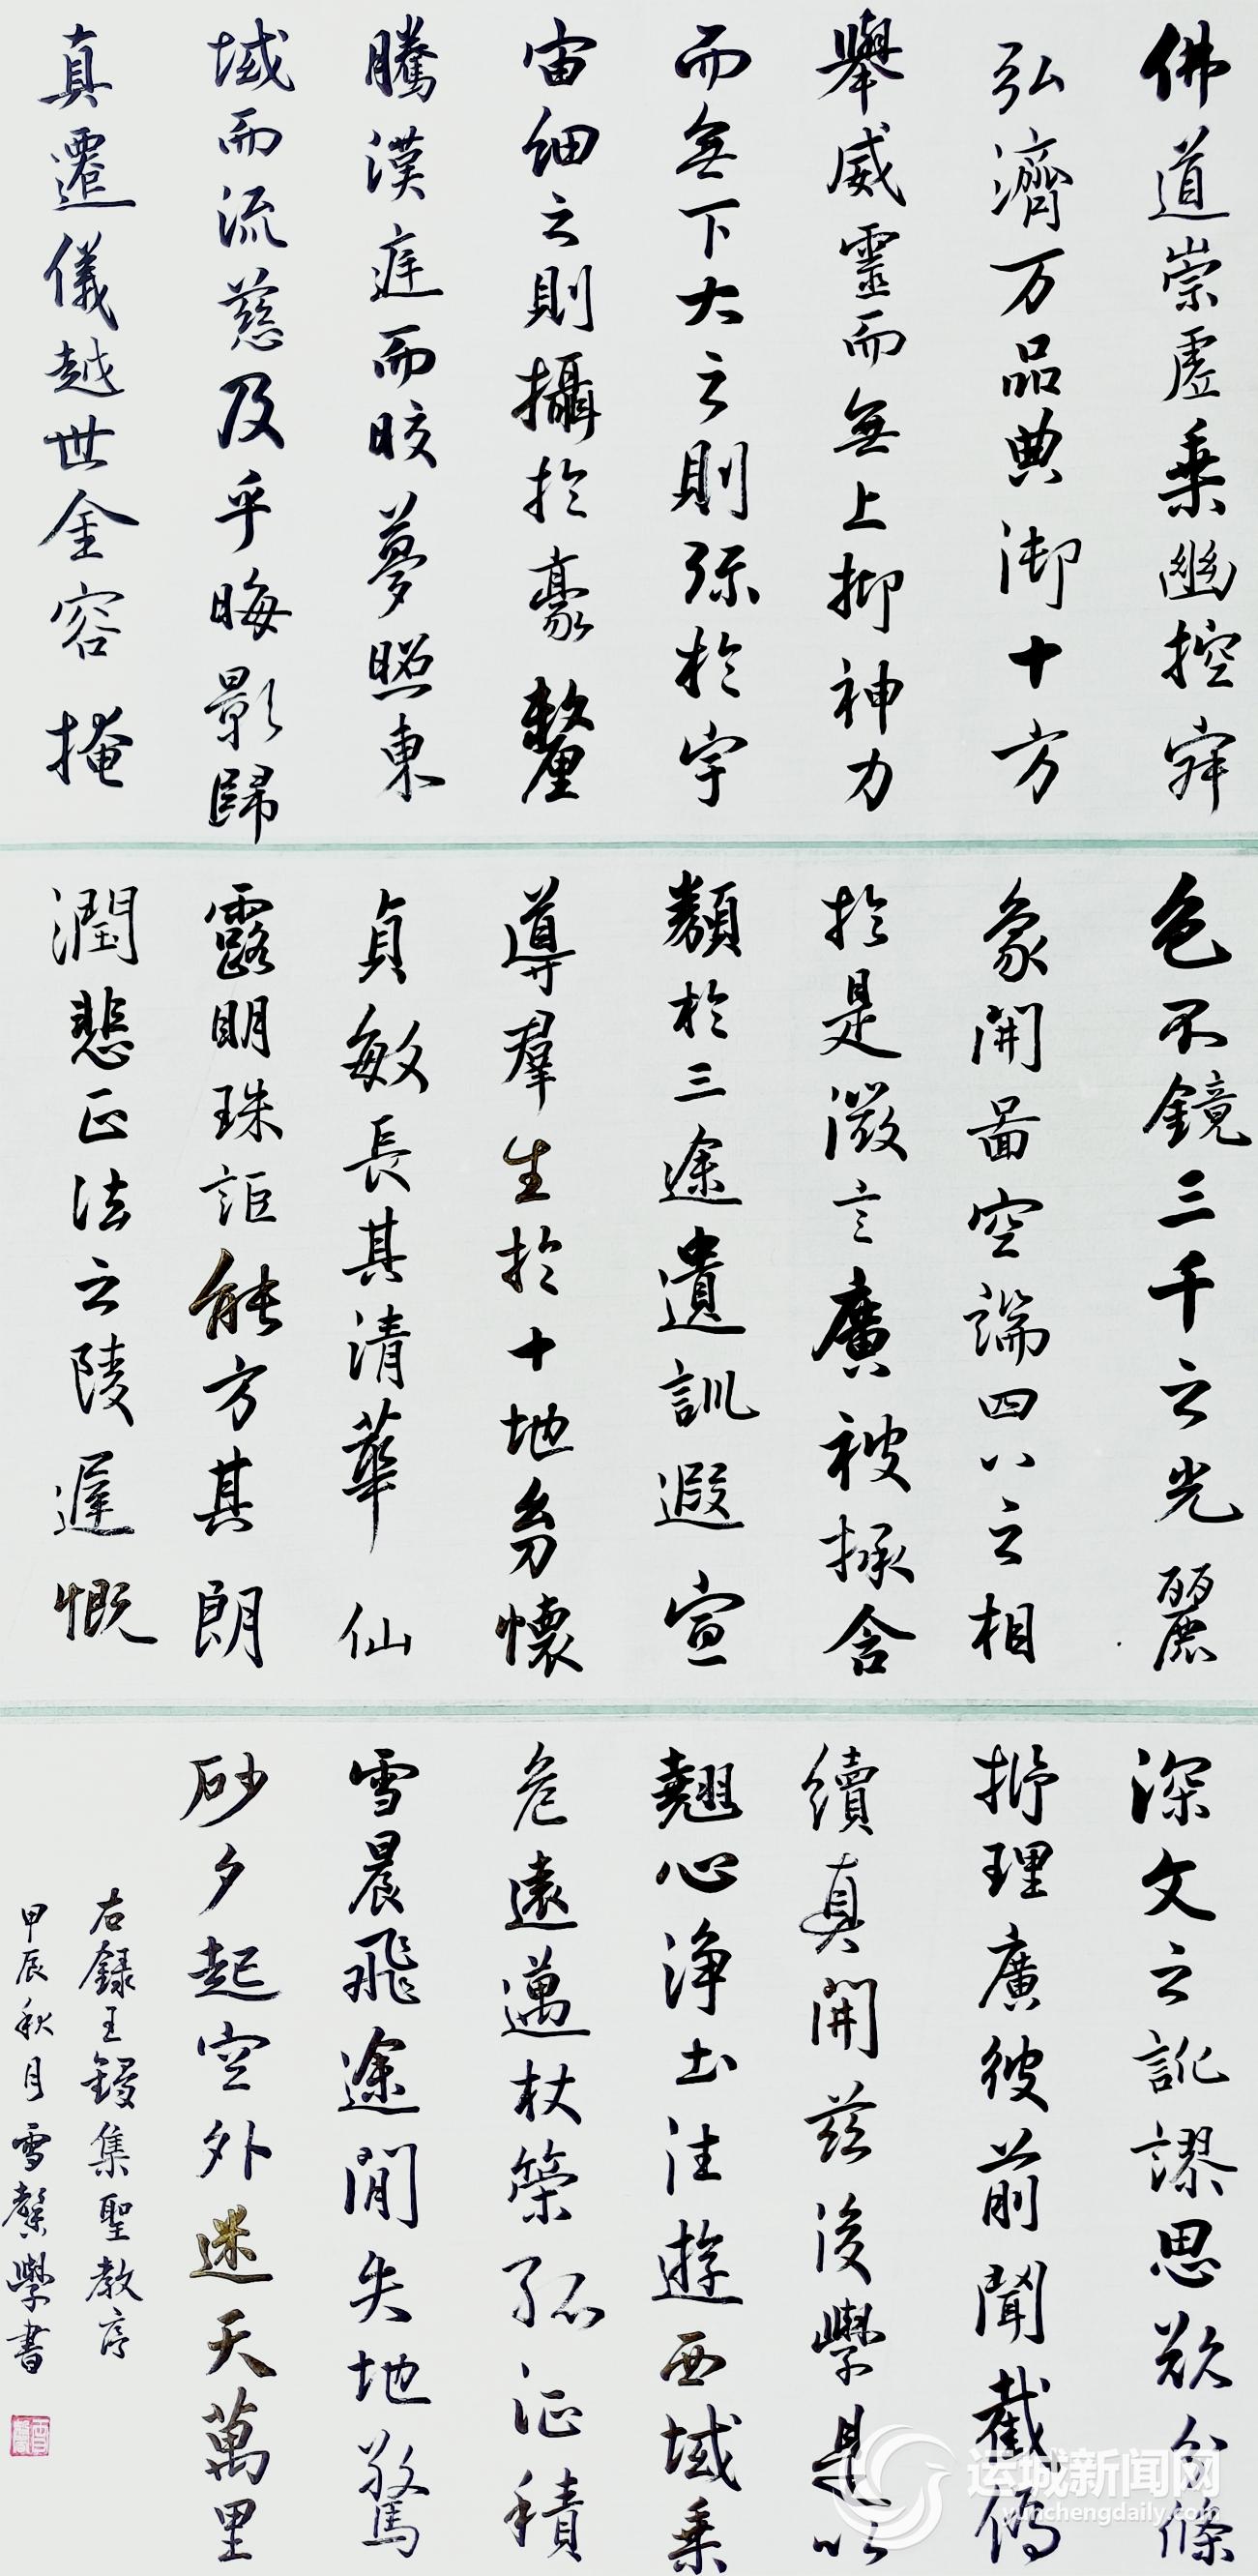 佛道崇虛乘幽控寂
弘濟万品典御十方
舉威靈而無上抑神力
而無下大之則弥於宇
宙細之則攝於豪釐
騰漢庭而皎夢照東
域而流慈及乎晦影歸
真遷儀越世金容掩
色不鏡三千之光麗
象開啚空端四八之相
於是微言廣被拯含
類於三途遺訓遐宣
導羣生於十地幼懷
貞敏長其清華仙
露明珠詎能方其朗
潤悲正法之陵遲慨
深文之訛謬思欲分條
抒理廣彼前聞截偽
續真開茲後學是以
翹心淨土法遊西域乗
危遠邁杖策孤征積
雪晨飛途間失地驚
砂夕起空外迷天萬里
右録王羲集聖教序
甲辰秋月雪馨學書
运城新闻网
yunchengdaily.com